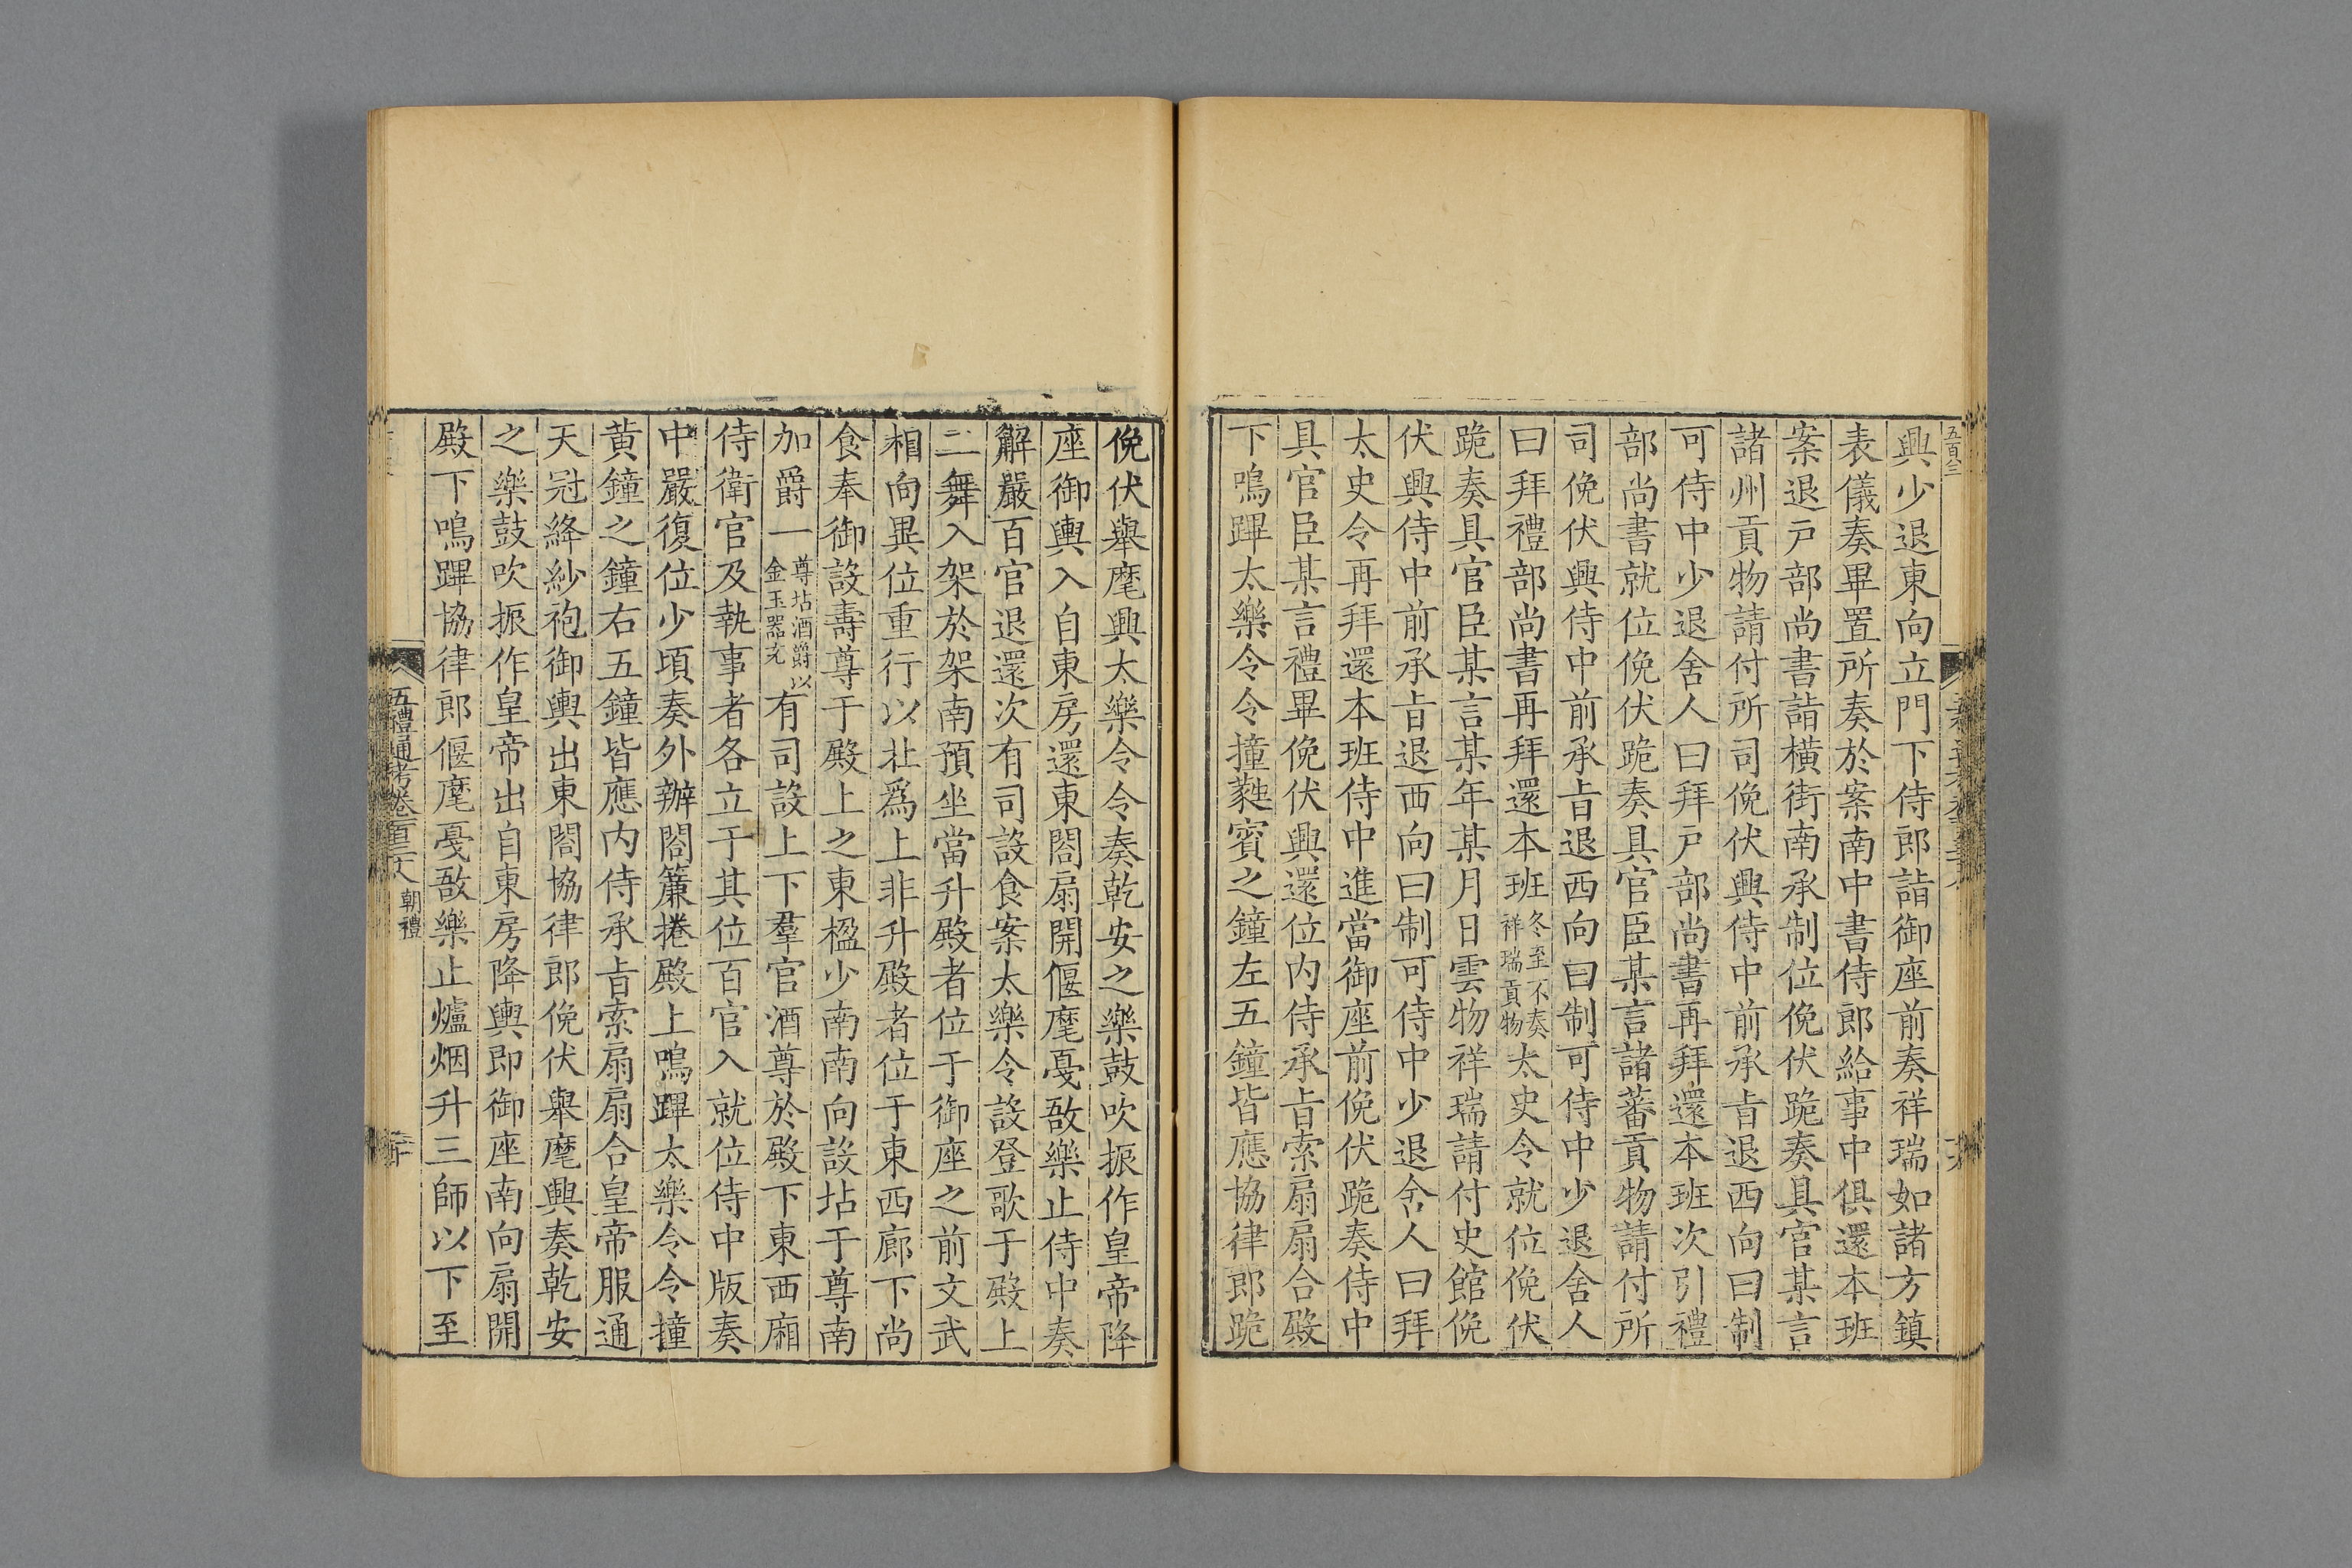 興少退東向立門下侍郎詣御座前奏祥瑞如諸方鎮
表儀奏畢置所奏於案南中書侍郎給事中俱還本班
案退戸部尚書詣橫街南承制位俛伏跪奏具官某言
諸州貢物請付所司俛伏興侍中前承旨退西向曰制
可侍中少退舍人曰拜戸部尚書再拜還本班次引禮
部尚書就位俛伏跪奏具官臣某言諸蕃貢物請付所
司俛伏興侍中前承旨退西向曰制可侍中少退舍人
曰拜禮部尚書再拜還本班冬至不奏祥瑞貢物太史令就位俛伏
跪奏具官臣某言某年某月日雲物祥瑞請付史館俛
伏興侍中前承旨退西向曰制可侍中少退舍人曰拜
太史令再拜還本班侍中進當御座前俛伏跪奏侍中
具官臣某言禮畢俛伏興還位内侍承旨索扇扇合殿
下鳴蹕太樂令令撞蕤賓之鐘左五鐘皆應協律郎跪
俛伏舉麾興太樂令令奏乾安之樂鼓吹振作皇帝降
座御輿入自東房還東閤扇開偃麾戛敔樂止侍中奏
解嚴百官退還次有司設食案太樂令設登歌于殿上
二舞入架於架南預坐當升殿者位于御座之前文武
相向異位重行以北爲上非升殿者位于東西廊下尚
食奉御設壽尊于殿上之東楹少南南向設坫于尊南
加爵一尊坫酒爵以金玉器充有司設上下羣官酒尊於殿下東西廂
侍衛官及執事者各立于其位百官入就位侍中版奏
中嚴復位少頃奏外辦閤簾捲殿上鳴蹕太樂令令撞
黄鐘之鐘右五鐘皆應内侍承旨索扇扇合皇帝服通
天冠絳紗袍御輿出東閤協律郎俛伏舉麾興奏乾安
之樂鼓吹振作皇帝出自東房降輿即御座南向扇開
殿下鳴蹕協律郎偃麾戛敔樂止爐烟升三師以下至
五禮通考卷一百三十六 朝禮